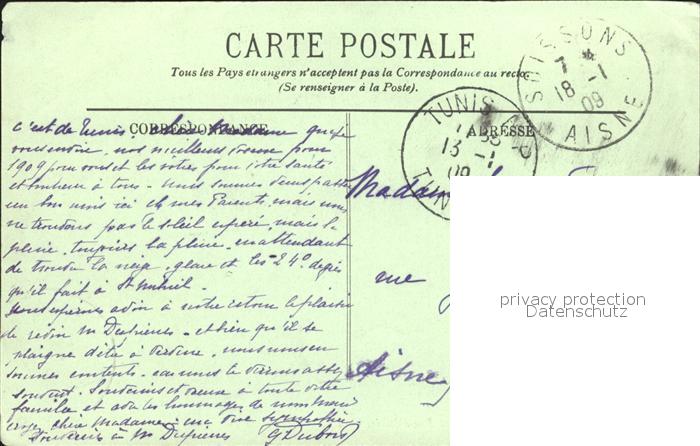 CARTE POSTALE
Tous les Pays étrangers n'acceptent pas la Correspondance au recto
(Se renseigner à la Poste).
CORRESPONDANCE
ADRESSE
SOISSONS
7 *
18 -1
09
AISNE
TUNIS
13 -1
09
TUNIS
c'est de Tunis chère Madame que je
vous envoie nos meilleurs voeux pour
1909 pour vous et les vôtres pour votre santé
et bonheur à tous. nous sommes venus passer
un bon mois ici chez mes Parents, mais nous
ne trouvons pas le soleil espéré, mais la
pluie, toujours la pluie. en attendant
de trouver la neige, glace et les 24° degrés
qu'il fait à St
nous espérons avoir à notre retour le plaisir
de revoir Mr et bien qu'il se
plaigne d'être à nous nous en
sommes contents. car nous le verrons assez
souvent. Souvenirs et voeux à toute votre
famille et avec les hommages de mon mari
croyez chère Madame à ma vive sympathie
Souvenirs à Mr G Dubois
Madame
rue
Aisne
privacy protection
Datenschutz